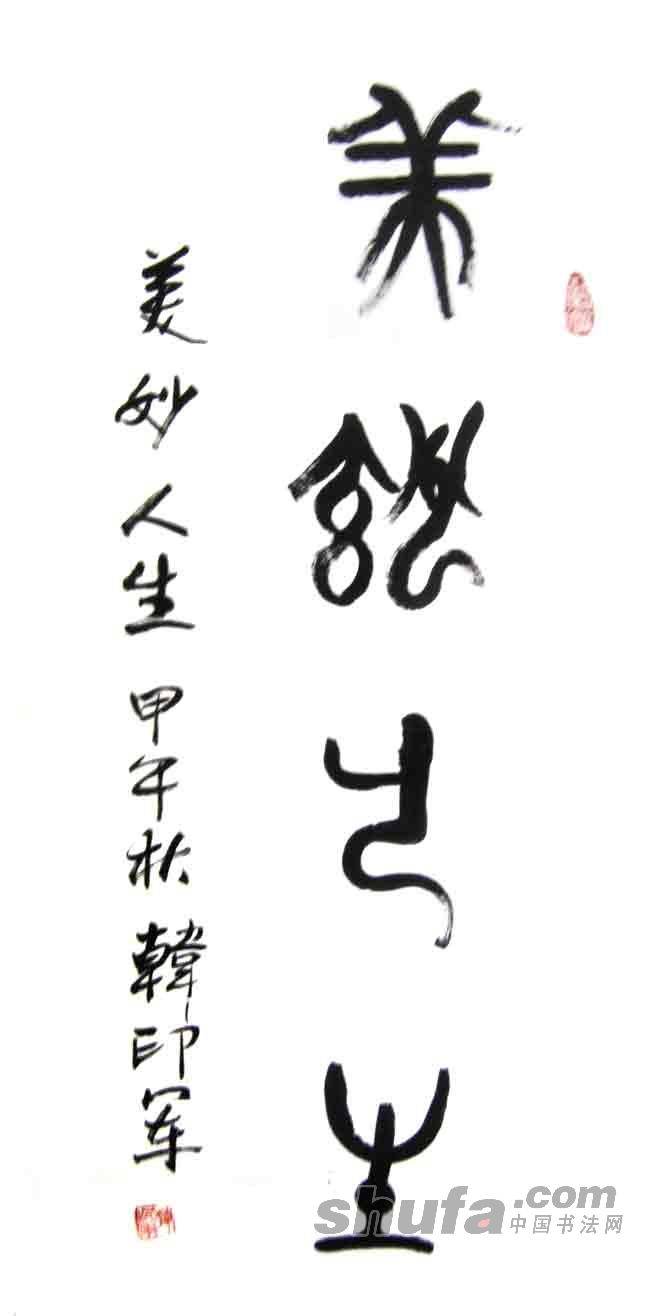 美妙人生
美妙人生 甲午秋 韓印军
shufa.com
中国书法网